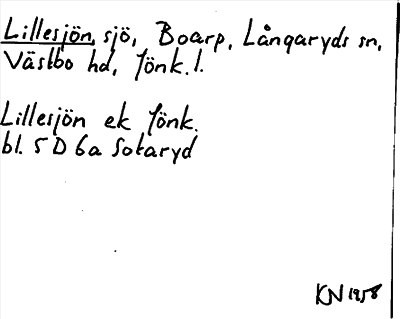 Lillesjön, sjö, Boarp, Långaryds sn,
Västbo hd, Jönk. l.
Lillesjön ek Jönk.
bl. 5 D 6a Sotaryd
KN 1958